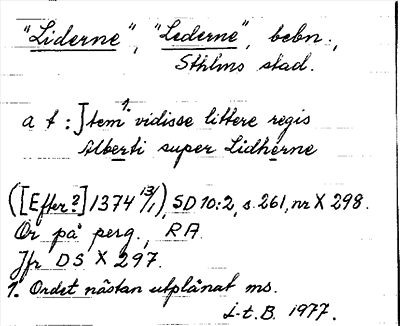 "Liderne", "Lederne", bebn.,
Sthlms stad.
a t : Item¹· vidisse littere regis
Alberti super Lidherne
([Efter?] 1374 13/1), SD 10:2, s. 261, nr X 298.
Or på perg., RA.
Jfr DS X 297.
1. Ordet nästan utplånat ms.
J-t. B. 1977.